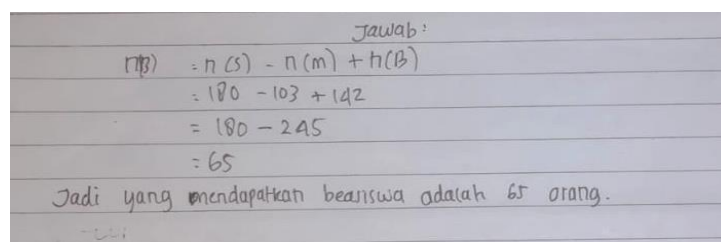 Jawab:
n(B) = n(S) - n(m) + n(B)
= 180 - 103 + 142
= 180 - 245
= 65
Jadi yang mendapatkan beasiswa adalah 65 orang.